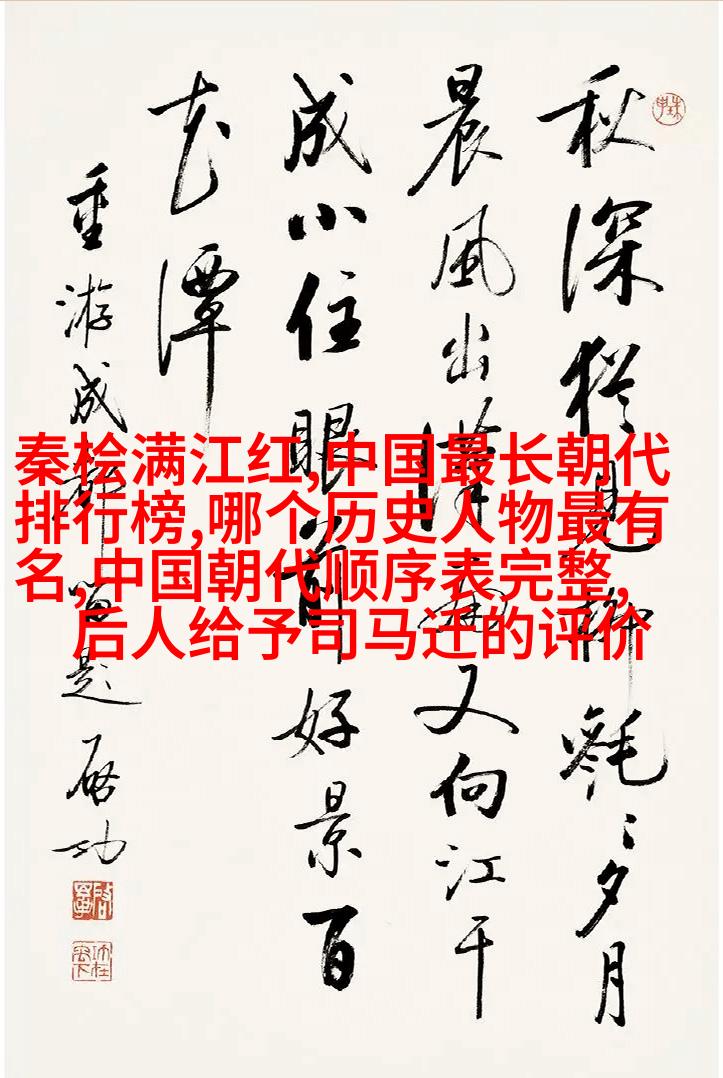 秦桧满江红,中国最长朝代
排行榜,哪个历史人物最有
名,中国朝代顺序表完整,
后人给予司马迁的评价
秋深猶見柳毿〻夕月
晨風出漢南又向江干
成小住眼前好景百
花潭
重游成都留題 啟功